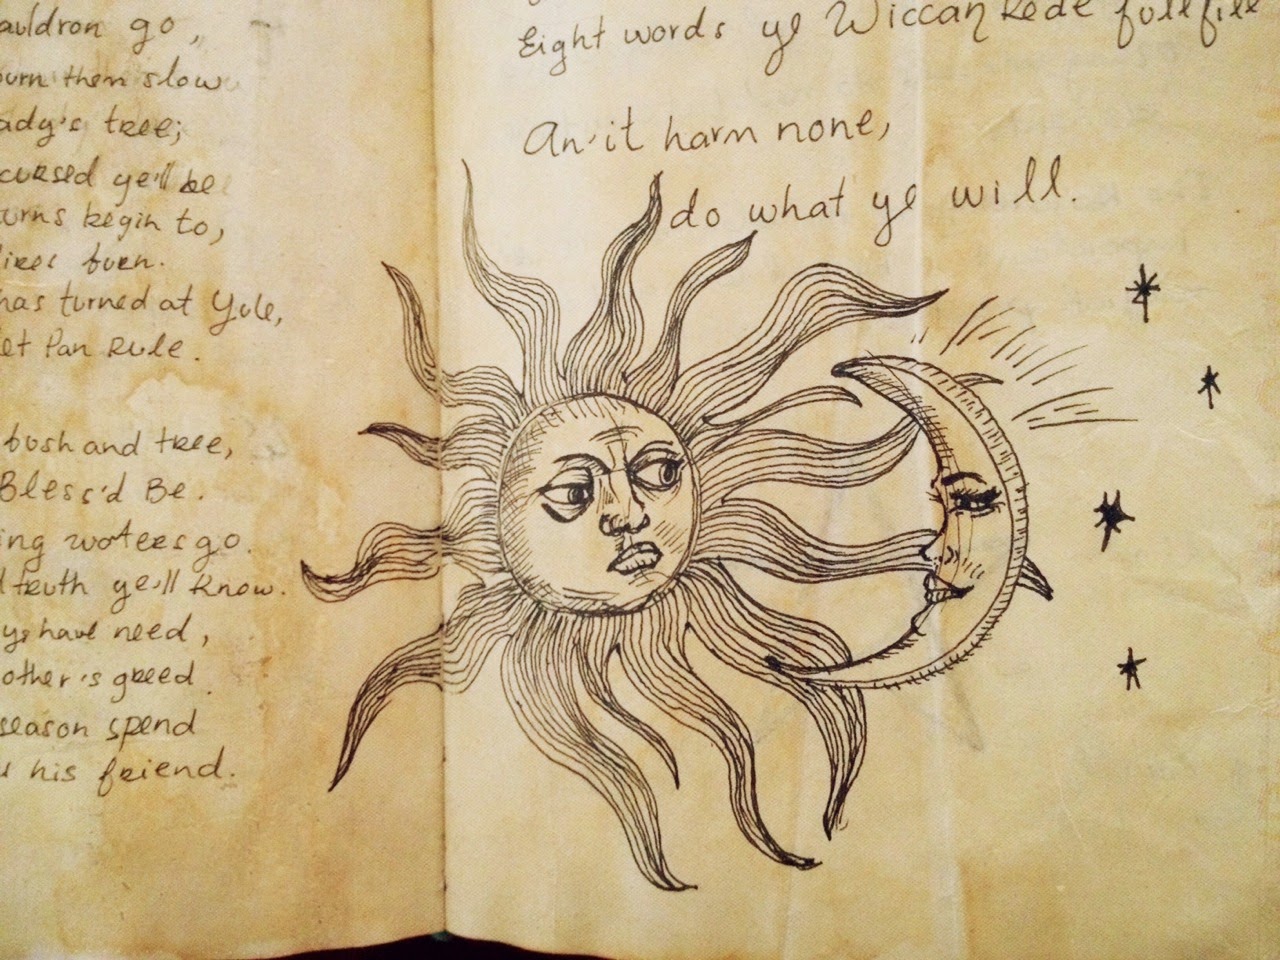 auldron go,
burn them slow
ady's tree;
cursed ye'll be
urns begin to,
fires burn.
has turned at Yule,
et Pan Rule.
bush and tree,
Bless'd Be.
ing waters go.
truth ye'll know.
ye have need,
other's greed.
season spend
his friend.
Eight words ye Wiccan Rede fullfill
An' it harm none,
do what ye will.